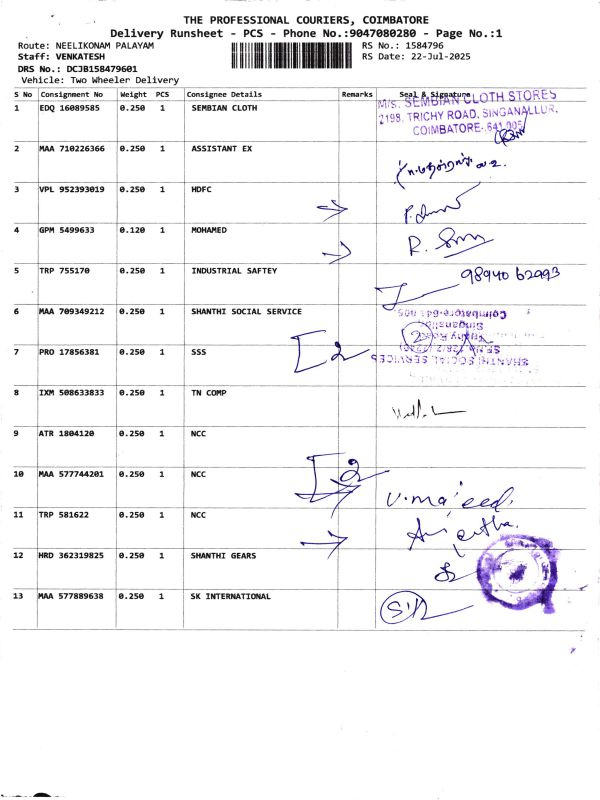 THE PROFESSIONAL COURIERS, COIMBATORE
Delivery Runsheet - PCS - Phone No.:9047080280 - Page No.:1
Route: NEELIKONAM PALAYAM RS No.: 1584796
Staff: VENKATESH RS Date: 22-Jul-2025
DRS No.: DCJB158479601
Vehicle: Two Wheeler Delivery
S No Consignment No Weight PCS Consignee Details Remarks Seal & Signature
1 EDQ 16089585 0.250 1 SEMBIAN CLOTH
M/s. SEMBIAN CLOTH STORES
2198, TRICHY ROAD, SINGANALLUR,
COIMBATORE-641 005
2 MAA 710226366 0.250 1 ASSISTANT EX
3 VPL 952393019 0.250 1 HDFC
4 GPM 5499633 0.120 1 MOHAMED
5 TRP 755170 0.250 1 INDUSTRIAL SAFTEY 98940 62993
6 MAA 709349212 0.250 1 SHANTHI SOCIAL SERVICE
Coimbatore-641 005
7 PRO 17856381 0.250 1 SSS [2
SHANTHI SOCIAL SERVICES
8 IXM 508633833 0.250 1 TN COMP
9 ATR 1804120 0.250 1 NCC
10 MAA 577744201 0.250 1 NCC [2
11 TRP 581622 0.250 1 NCC
12 HRD 362319825 0.250 1 SHANTHI GEARS
13 MAA 577889638 0.250 1 SK INTERNATIONAL